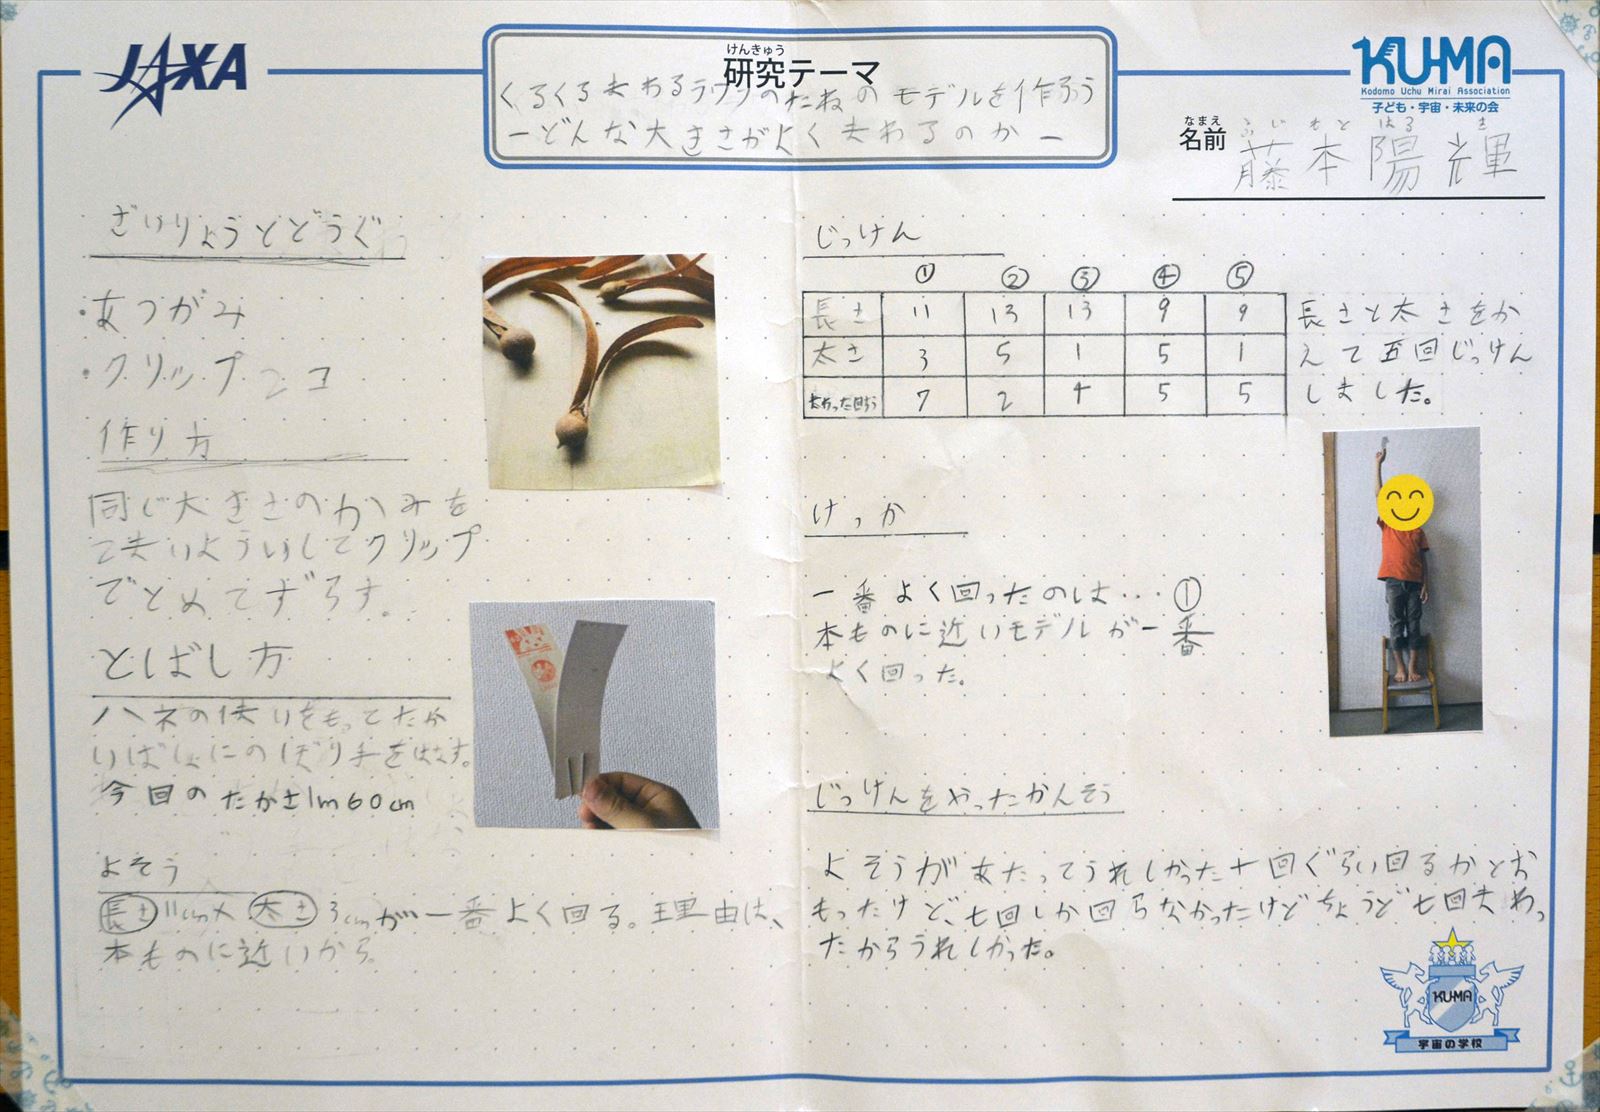 JAXA
けんきゅう
研究テーマ
くるくるまわるラワンのたねのモデルを作ろう
ーどんな大きさがよくまわるのかー
KU-MA
Kodomo Uchu Mirai Association
子ども・宇宙・未来の会
なまえ
名前
ふじもと はるき
藤本陽輝
ざいりょうとどうぐ
・あつがみ
・クリップ2コ
作り方
同じ大きさのかみを
2まいよういしてクリップ
でとめてずらす。
とばし方
ハネの使いをもってたか
いばしょにのぼり手をはなす。
今回のたかさ1m60cm
よそう
長さ11cm×太さ3cmが一番よく回る。理由は、
本ものに近いから
じっけん
① ② ③ ④ ⑤
長さ 11 13 13 9 9
太さ 3 5 1 5 1
まわった回すう 7 2 4 5 5
長さと太さをか
えて五回じっけん
しました。
けっか
一番よく回ったのは…①
本ものに近いモデルが一番
よく回った。
じっけんをやったかんそう
よそうがあたってうれしかった十回ぐらい回るかとお
もったけど、七回しか回らなかったけどちょうど七回まわっ
たからうれしかった。
KU-MA
宇宙の学校